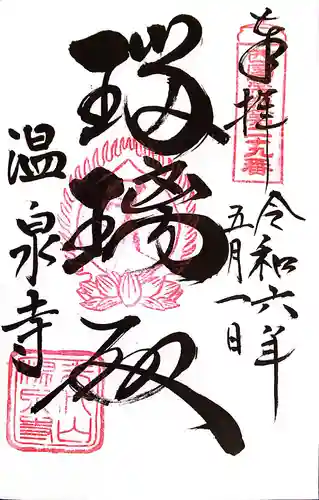 奉拝
令和六年
五月一日
瑠璃殿
温泉寺